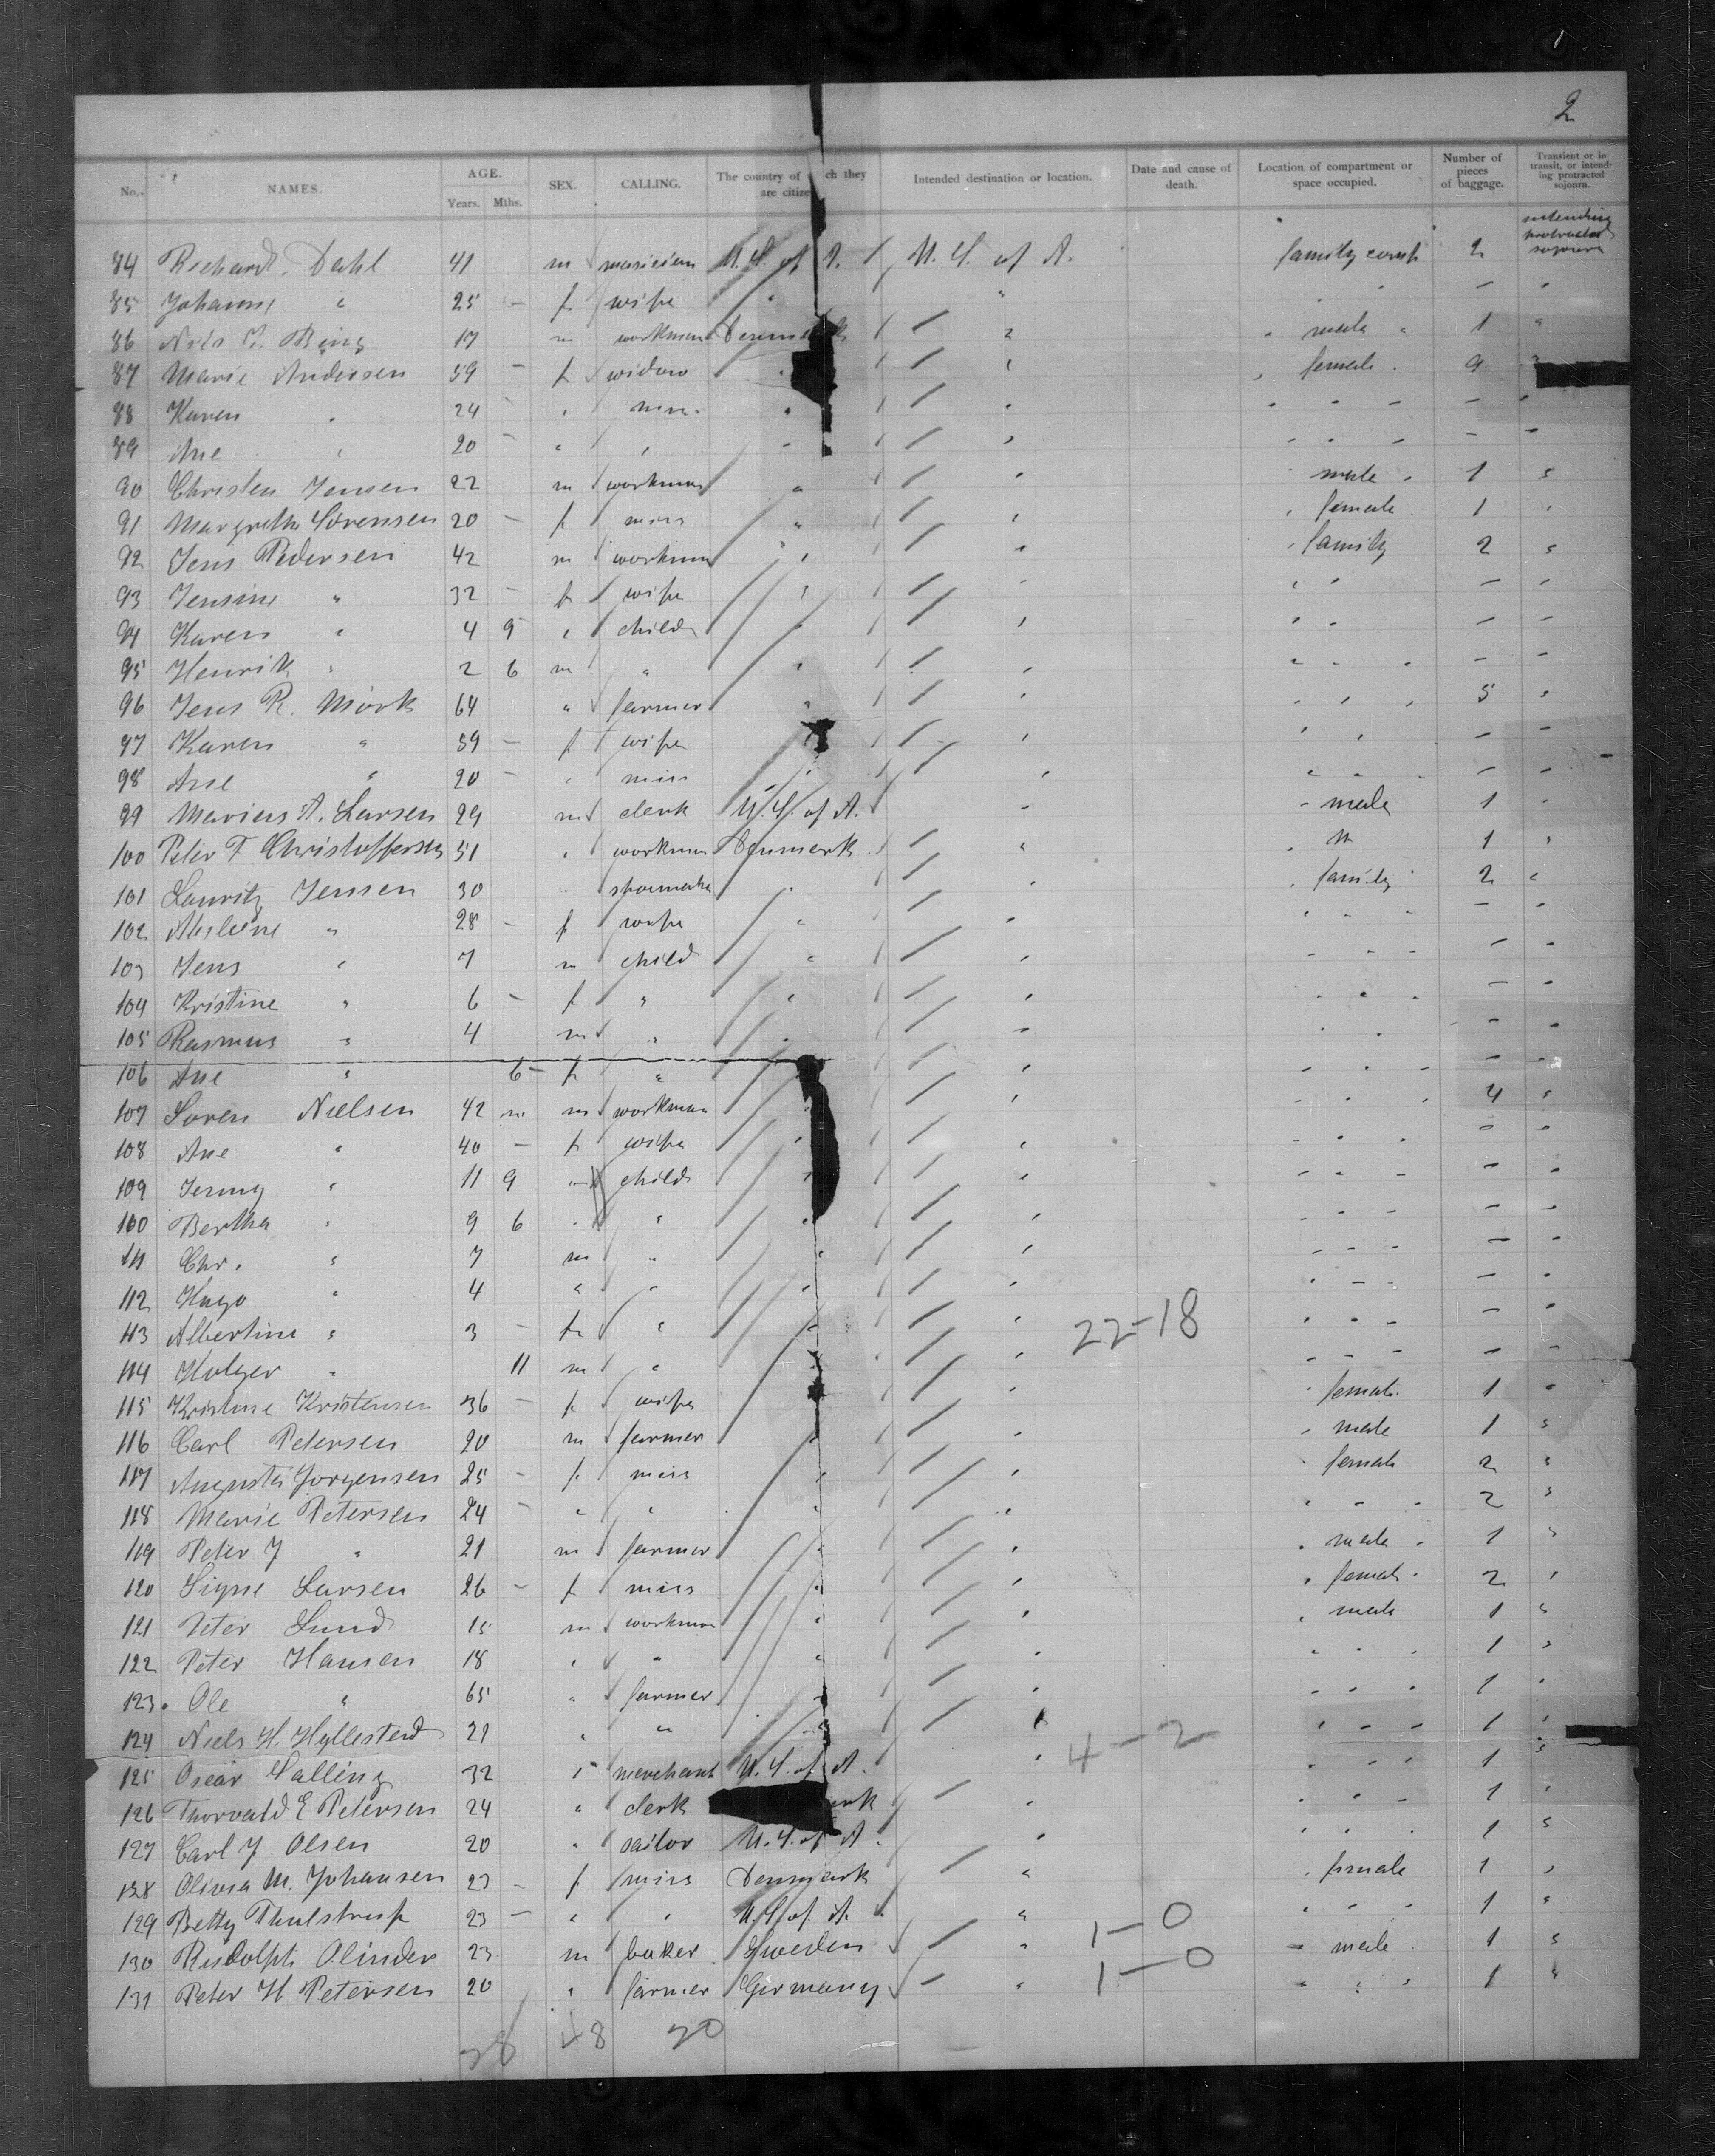 2
No. NAMES. AGE. Years. Mths. SEX. CALLING. The country of ch they are citize Intended destination or location. Date and cause of death. Location of compartment or space occupied. Number of pieces of baggage. Transient or in transit, or intending protracted sojourn.
intending protracted sojourn
84 Richard Dahl 41 m musician U.S. of A. U.S. of A. family comp 2
85 Johanne " 25 - f wife " " " " - "
86 Niels J. Bing 17 m workman Denmark " " male " 1 "
87 Marie Andersen 59 - f widow " " " female " 9 "
88 Karen " 24 - " miss " " " " " - "
89 Ane " 20 - " " " " " " " - "
90 Christen Jensen 22 m workman " " male " 1 "
91 Margrethe Sörensen 20 - f miss " " " female 1 "
92 Jens Pedersen 42 m workman " " " family 2 "
93 Jensine " 32 - f wife " " " " - "
94 Karen " 4 9 " child " " " " - "
95 Henrik " 2 6 m " " " " " " - "
96 Jens R. Mörk 64 " farmer " " " " " 5 "
97 Karen " 59 - f wife " " " " - "
98 Ane " 20 - " miss " " " " " - "
99 Marius A. Larsen 29 m clerk U.S. of A. " " male 1 "
100 Peter F Christoffersen 51 " workman Denmark " " m 1 "
101 Lauritz Jensen 30 " shoemaker " " " family 2 "
102 28 - f wife " " " " " - "
103 Jens " 7 m child " " " " " - "
104 Kristine " 6 - f " " " " " " - "
105 Rasmus " 4 m " " " " " - "
106 Ane " 6 - f " " " " " " - "
107 Sören Nielsen 42 m m workman " " " " " 4 "
108 Ane " 40 - f wife " " " " " - "
109 Jenny " 11 9 " child " " " " " - "
110 Bertha " 9 6 " " " " " " " - "
111 Chr. " 7 m " " " " " " - "
112 Hago " 4 " " " " " " " - "
113 Albertine " 3 - f " " " 22-18 " " " - "
114 Holger " 11 m " " " " " " - "
115 Kristine Kristensen 36 - f wife " " " female 1 "
116 Carl Petersen 20 m farmer " " " male 1 "
117 Augusta Jorgensen 25 - f miss " " " female 2 "
118 Marie Petersen 24 - " " " " " " " 2 "
119 Peter J " 21 m farmer " " " male " 1 "
120 Signe Larsen 26 - f miss " " " female " 2 "
121 Peter Lund 15 m workman " " " male 1 "
122 Peter Hansen 18 " " " " " " " 1 "
123 Ole " 65 " farmer " " " " " 1 "
124 Niels H. Hyllested 21 " " " " " " " 1 "
125 Oscar Salling 32 " merchant U.S. of A. " 4-2 " " " 1 "
126 Thorvald E Petersen 24 " clerk rk " " " " 1 "
127 Carl J Olsen 20 " sailor U.S. of A. " " " " 1 "
128 Olivia M. Johansen 23 - f miss Denmark " " female 1 "
129 Betty Thulstrup 23 - " " U.S. of A. " 1-0 " " " 1 "
130 Rudolph Olinder 23 m baker Sweden " 1-0 " male 1 "
131 Peter H Petersen 20 " farmer Germany " " " " 1 "
48